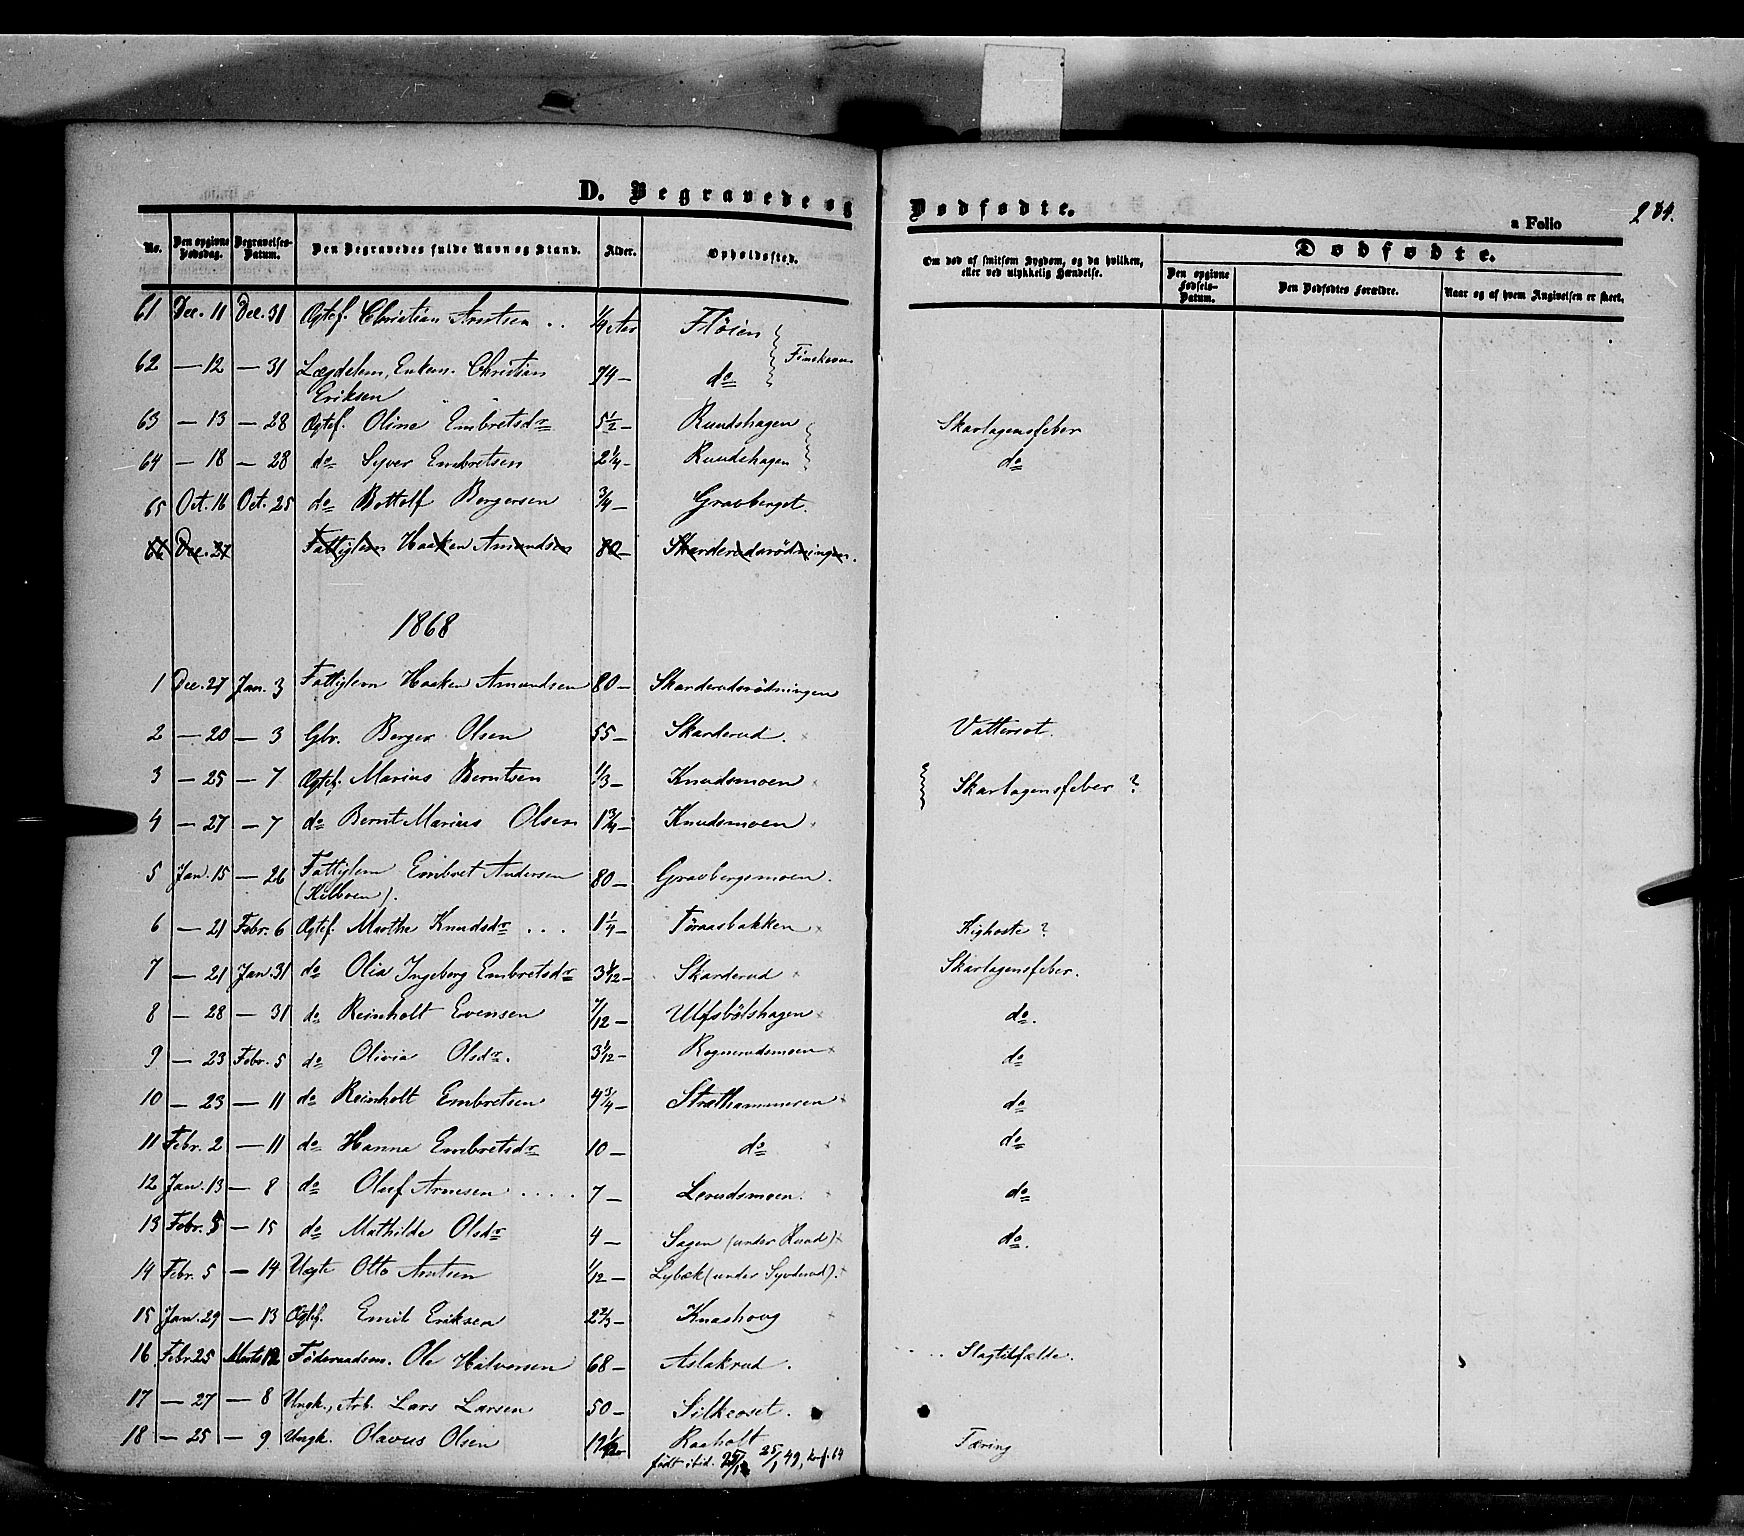 D. Begravede og Dødfødte.
a Folio 284.
No. Den opgivne Dødsdag. Begravelses-Datum. Den Begravedes fulde Navn og Stand. Alder. Opholdssted. Om død af smitsom Sygdom, og da hvilken, eller ved ulykkelig Hændelse. Dødfødte.
Den opgivne Fødsels-Datum. Den Dødfødtes Forældre. Naar og af hvem Angivelsen er skeet.
61 Dec. 11 Dec. 31 Ægtef. Christian Arntsen . . 1/4 Aar Fløien
62 — 12 — 31 Lægdslem, Enkem. Christian Eriksen 74 — do
63 — 13 — 28 Ægtef. Oline Embretsdr 5 1/2 — Ruudshagen Skarlagensfeber
64 — 18 — 28 do Syver Embretsen 2 1/4 — Ruudshagen do
65 Oct. 16 Oct. 25 do Bottolf Bergersen 3/4 — Gravberget.
66 Dec. 27 Fattiglem Haaken Amundsen 80 — Skarderudsrødningen.
1868
1 Dec. 27 Jan. 3 Fattiglem Haaken Amundsen 80 — Skarderudsrødningen
2 — 20 — 3 Gbr. Berger Olsen 55 — Skarderud. Vattersot.
3 — 25 — 7 Ægtef. Marius Berntsen 1/3 — Knudsmoen Skarlagensfeber ?
4 — 27 — 7 do Bernt Marius Olsen 1 3/4 — Knudsmoen
5 Jan. 15 — 26 Fattiglem Embret Andersen 80 — Gravbergsmoen.
(Kilboen).
6 — 21 Febr. 6 Ægtef. Marthe Knudsdr . . . 1 1/4 — Føraasbakken Kighoste ?
7 — 21 Jan. 31 do Olia Ingeborg Embretsdr 3 1/12 — Skarderud Skarlagensfeber.
8 — 28 — 31 do Reinholt Evensen 7/12 — Ulfsbølshagen do.
9 — 23 Febr. 5 do Olivia Olsdr. 3 1/12 — Rognerudsmoen do
10 — 23 — 11 do Reinholt Embretsen 4 3/4 — Stræthammeren do
11 Febr. 2 — 11 do Hanna Embretsdr 10 — do do
12 Jan. 13 — 8 do Oluf Arnesen . . . . . 7 — Lerudsmoen. do
13 Febr. 5 — 15 do Mathilde Olsdr 4 — Sagen (under Ruud) do.
14 Febr. 5 — 14 Uægte Otto Arntsen 1/12 — Lybæk (under Syverud).
15 Jan. 29 — 13 Ægtef. Emil Eriksen 2 2/3 — Knashoug
16 Febr. 25 Marts 12 Føderaadsm. Ole Halvorsen 68 — Aslakrud. Slagtilfælde.
17 — 27 — 8 Ungk., Arb. Lars Larsen 50 — Silkeoset.
18 — 25 — 9 Ungk. Olavus Olsen Raaholt Tæring
født ibid. 25/1 49,